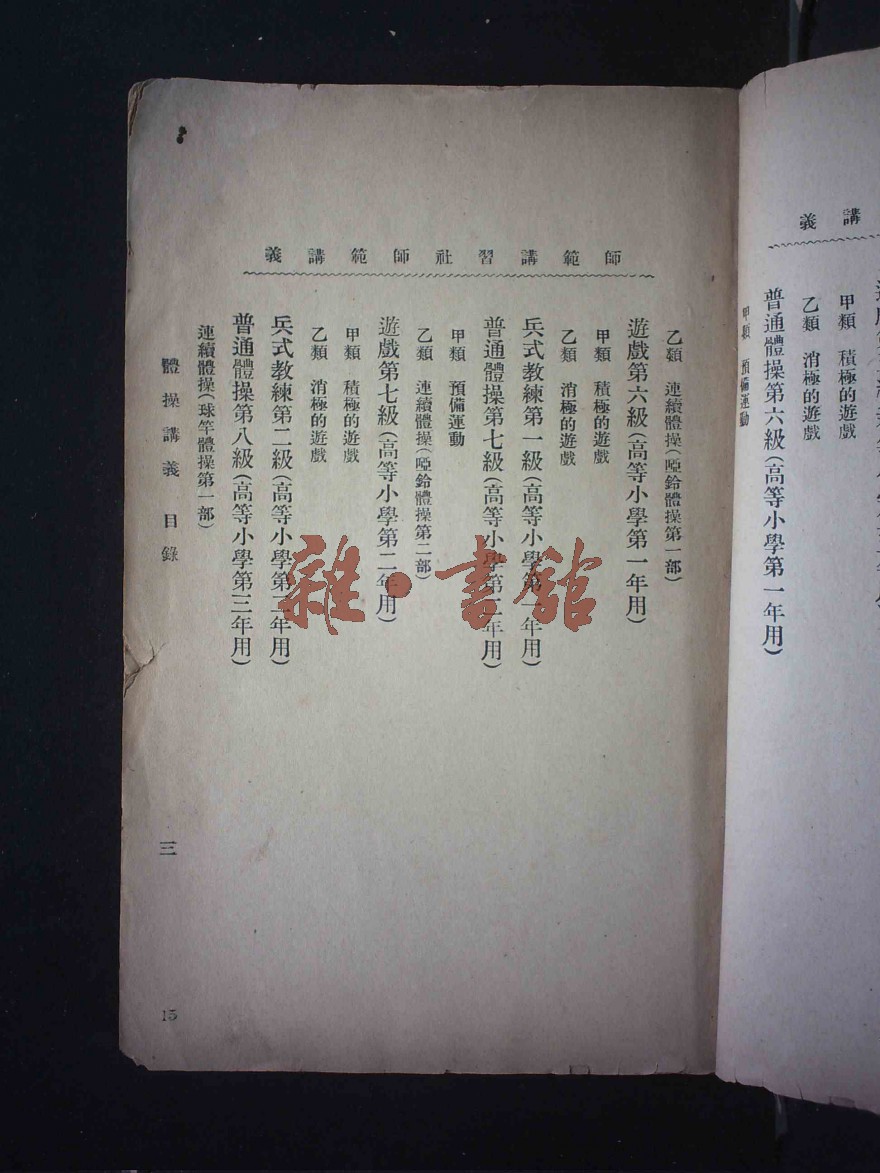 講義
甲類 積極的遊戲
乙類 消極的遊戲
普通體操第六級(高等小學第一年用)
甲類 預備運動
師範講習社師範講義
乙類 連續體操(啞鈴體操第一部)
遊戲第六級(高等小學第一年用)
甲類 積極的遊戲
乙類 消極的遊戲
兵式教練第一級(高等小學第一年用)
普通體操第七級(高等小學第二年用)
甲類 預備運動
乙類 連續體操(啞鈴體操第二部)
遊戲第七級(高等小學第二年用)
甲類 積極的遊戲
乙類 消極的遊戲
兵式教練第二級(高等小學第二年用)
普通體操第八級(高等小學第三年用)
連續體操(球竿體操第一部)
體操講義 目錄
三
15
雜·書館